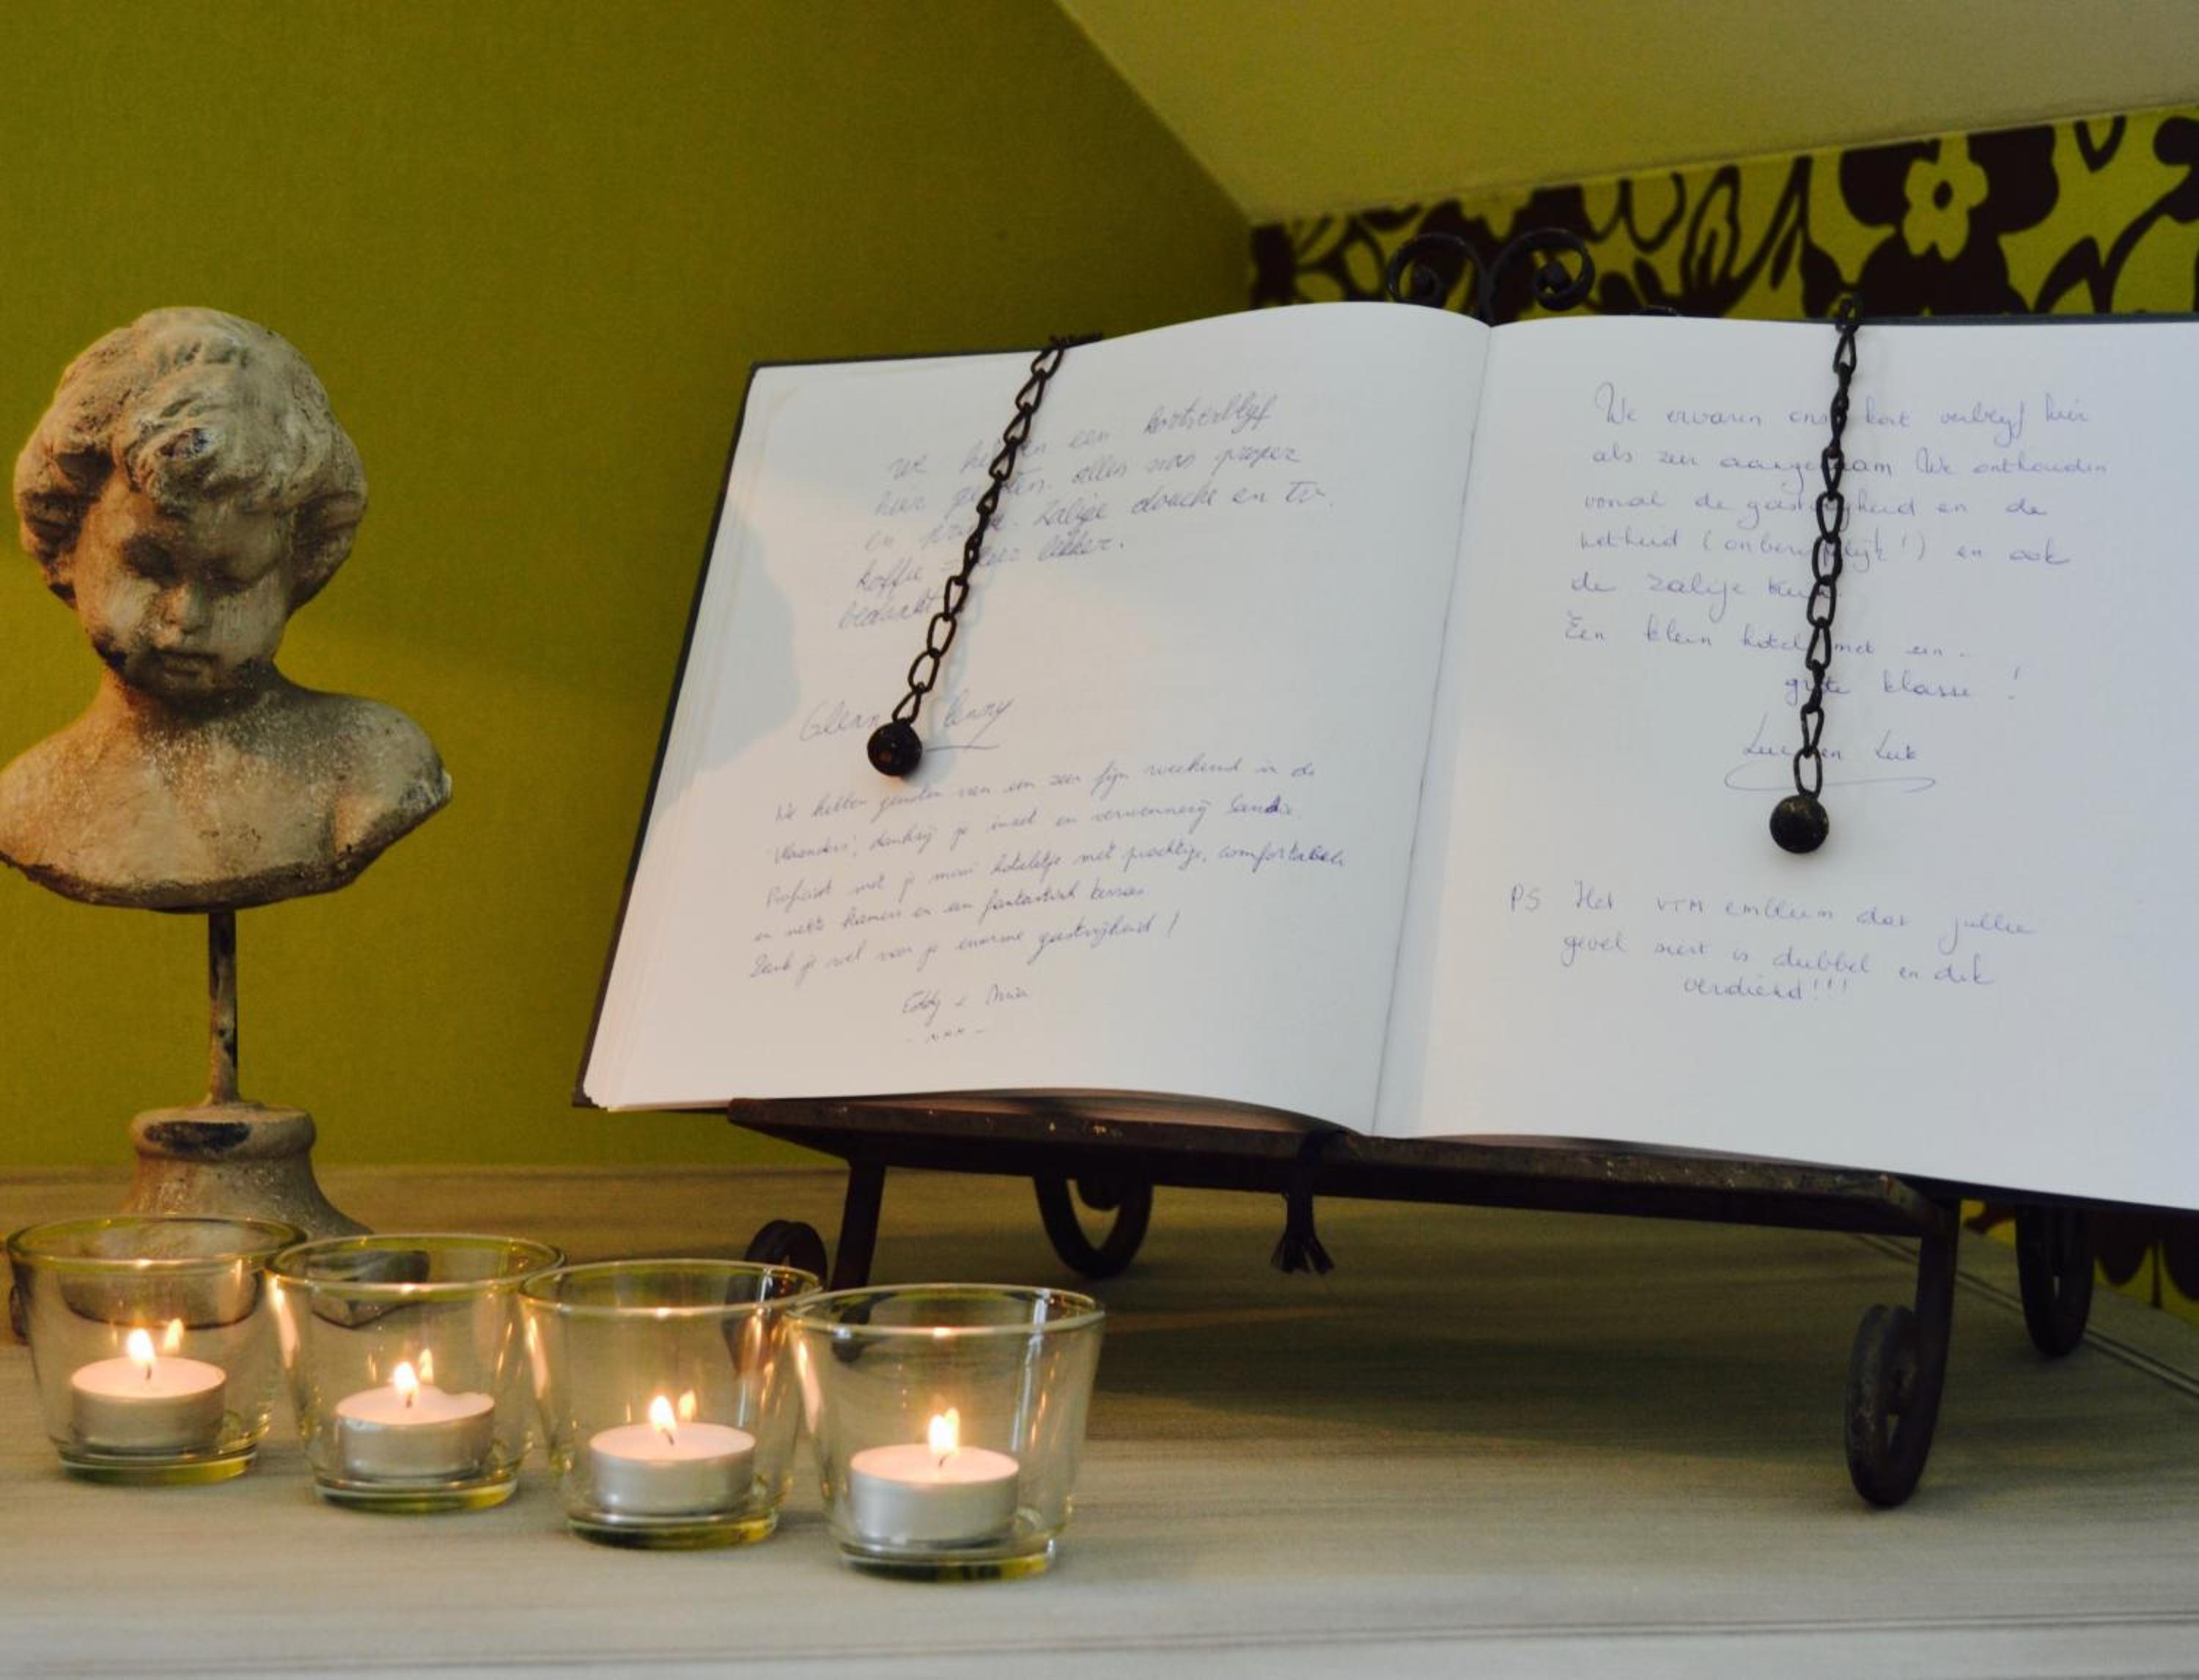 we een kortverblijf
hier alles was proper
en Zalige douche en TV.
koffie zeer lekker.
bedankt
Glenn
We hebben genoten van een zeer fijn weekend in de
Vlaanders', dankzij je inzet en verwennerij Sandra.
Proficiat met je mooi hotelletje met prachtige, comfortabele
en nette kamers en een fantastisch terras
Dank je wel voor je enorme gastvrijheid!
Eddy +
We ervaren ons kort verblijf hier
als zeer aangenaam We onthouden
vooral de gastvrijheid en de
netheid (onberispelijk!) en ook
de zalige
Een klein hotel met een
grote klasse!
Luc en
PS Het VTM embleem dat jullie
gevel siert is dubbel en dik
verdiend!!!